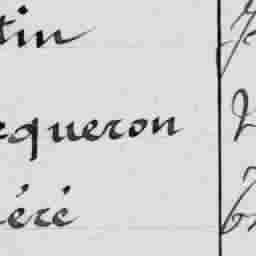 tin
cqueron
éré